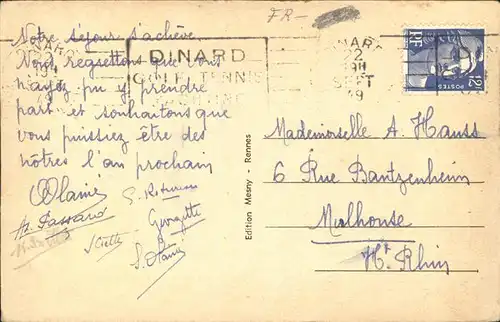 FR-
Notre séjour s'achève.
Nous regrettons que vous
n'ayez pu y prendre
part et souhaitons que
vous puissiez être des
nôtres l'an prochain
Georgette
DINARD
GOLF TENNIS
DINARD
22
SEPT
49
RF
POSTES
12F
Edition Mesny - Rennes
Mademoiselle A. Hauss
6 Rue Bantzenheim
Mulhouse
Ht Rhin